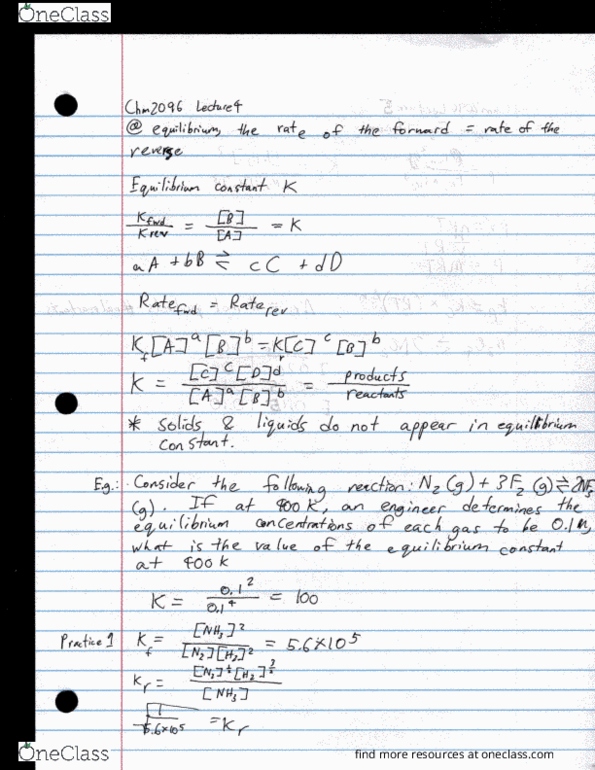 OneClass
Chm2096 Lecture 4
@ equilibrium, the rate of the forward = rate of the
reverse
Equilibrium constant K
Kfwd/Krev = [B]/[A] = K
aA + bB ⇌ cC + dD
Ratefwd = Raterev
Kf[A]^a [B]^b = Kr[C]^c [B]^b
K = [C]^c [D]^d / [A]^a [B]^b = products/reactants
* Solids & liquids do not appear in equilibrium
constant.
Eg.: Consider the following reaction: N2 (g) + 3F2 (g) ⇌ 2NF3
(g). If at 400 K, an engineer determines the
equilibrium concentrations of each gas to be 0.1 M,
what is the value of the equilibrium constant
at 400 K
K = 0.1^2/0.1^4 = 100
Practice 1 Kf = [NH3]^2/[N2][H2]^2 = 5.6×10^5
Kr = [N2]^½ [H2]^3/2 / [NH3]
1/5.6×10^5 = Kr
OneClass
find more resources at oneclass.com